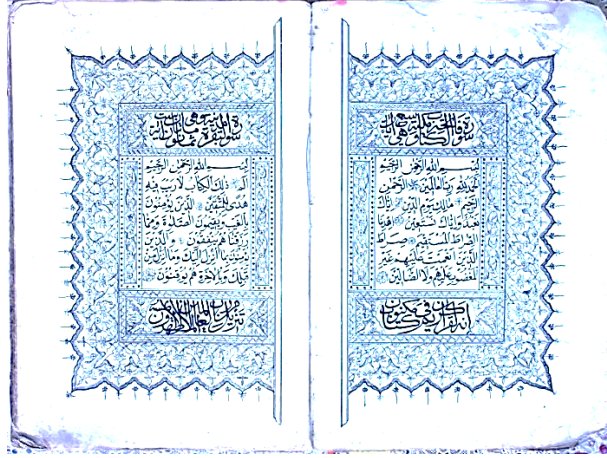 سورة فاتحة الكتاب
بسم الله الرحمن الرحيم
الحمد لله رب العالمين الرحمن
الرحيم مالك يوم الدين اياك
نعبد واياك نستعين اهدنا
الصراط المستقيم صراط
الذين انعمت عليهم غير
المغضوب عليهم ولا الضالين
انه لقرآن كريم في كتاب مكنون
سورة البقرة
بسم الله الرحمن الرحيم
الم ذلك الكتاب لا ريب فيه
هدى للمتقين الذين يؤمنون
بالغيب ويقيمون الصلوة ومما
رزقناهم ينفقون والذين
يؤمنون بما انزل اليك وما انزل من
قبلك وبالاخرة هم يوقنون
لا يمسه الا المطهرون تنزيل من رب العالمين